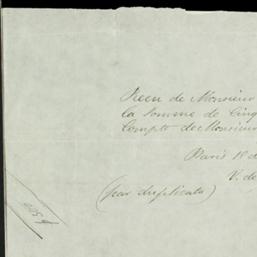 Recu de Monsieur
la somme de Cinq
Compte de Monsieur
Paris 18 d
V. de
(par duplicata)